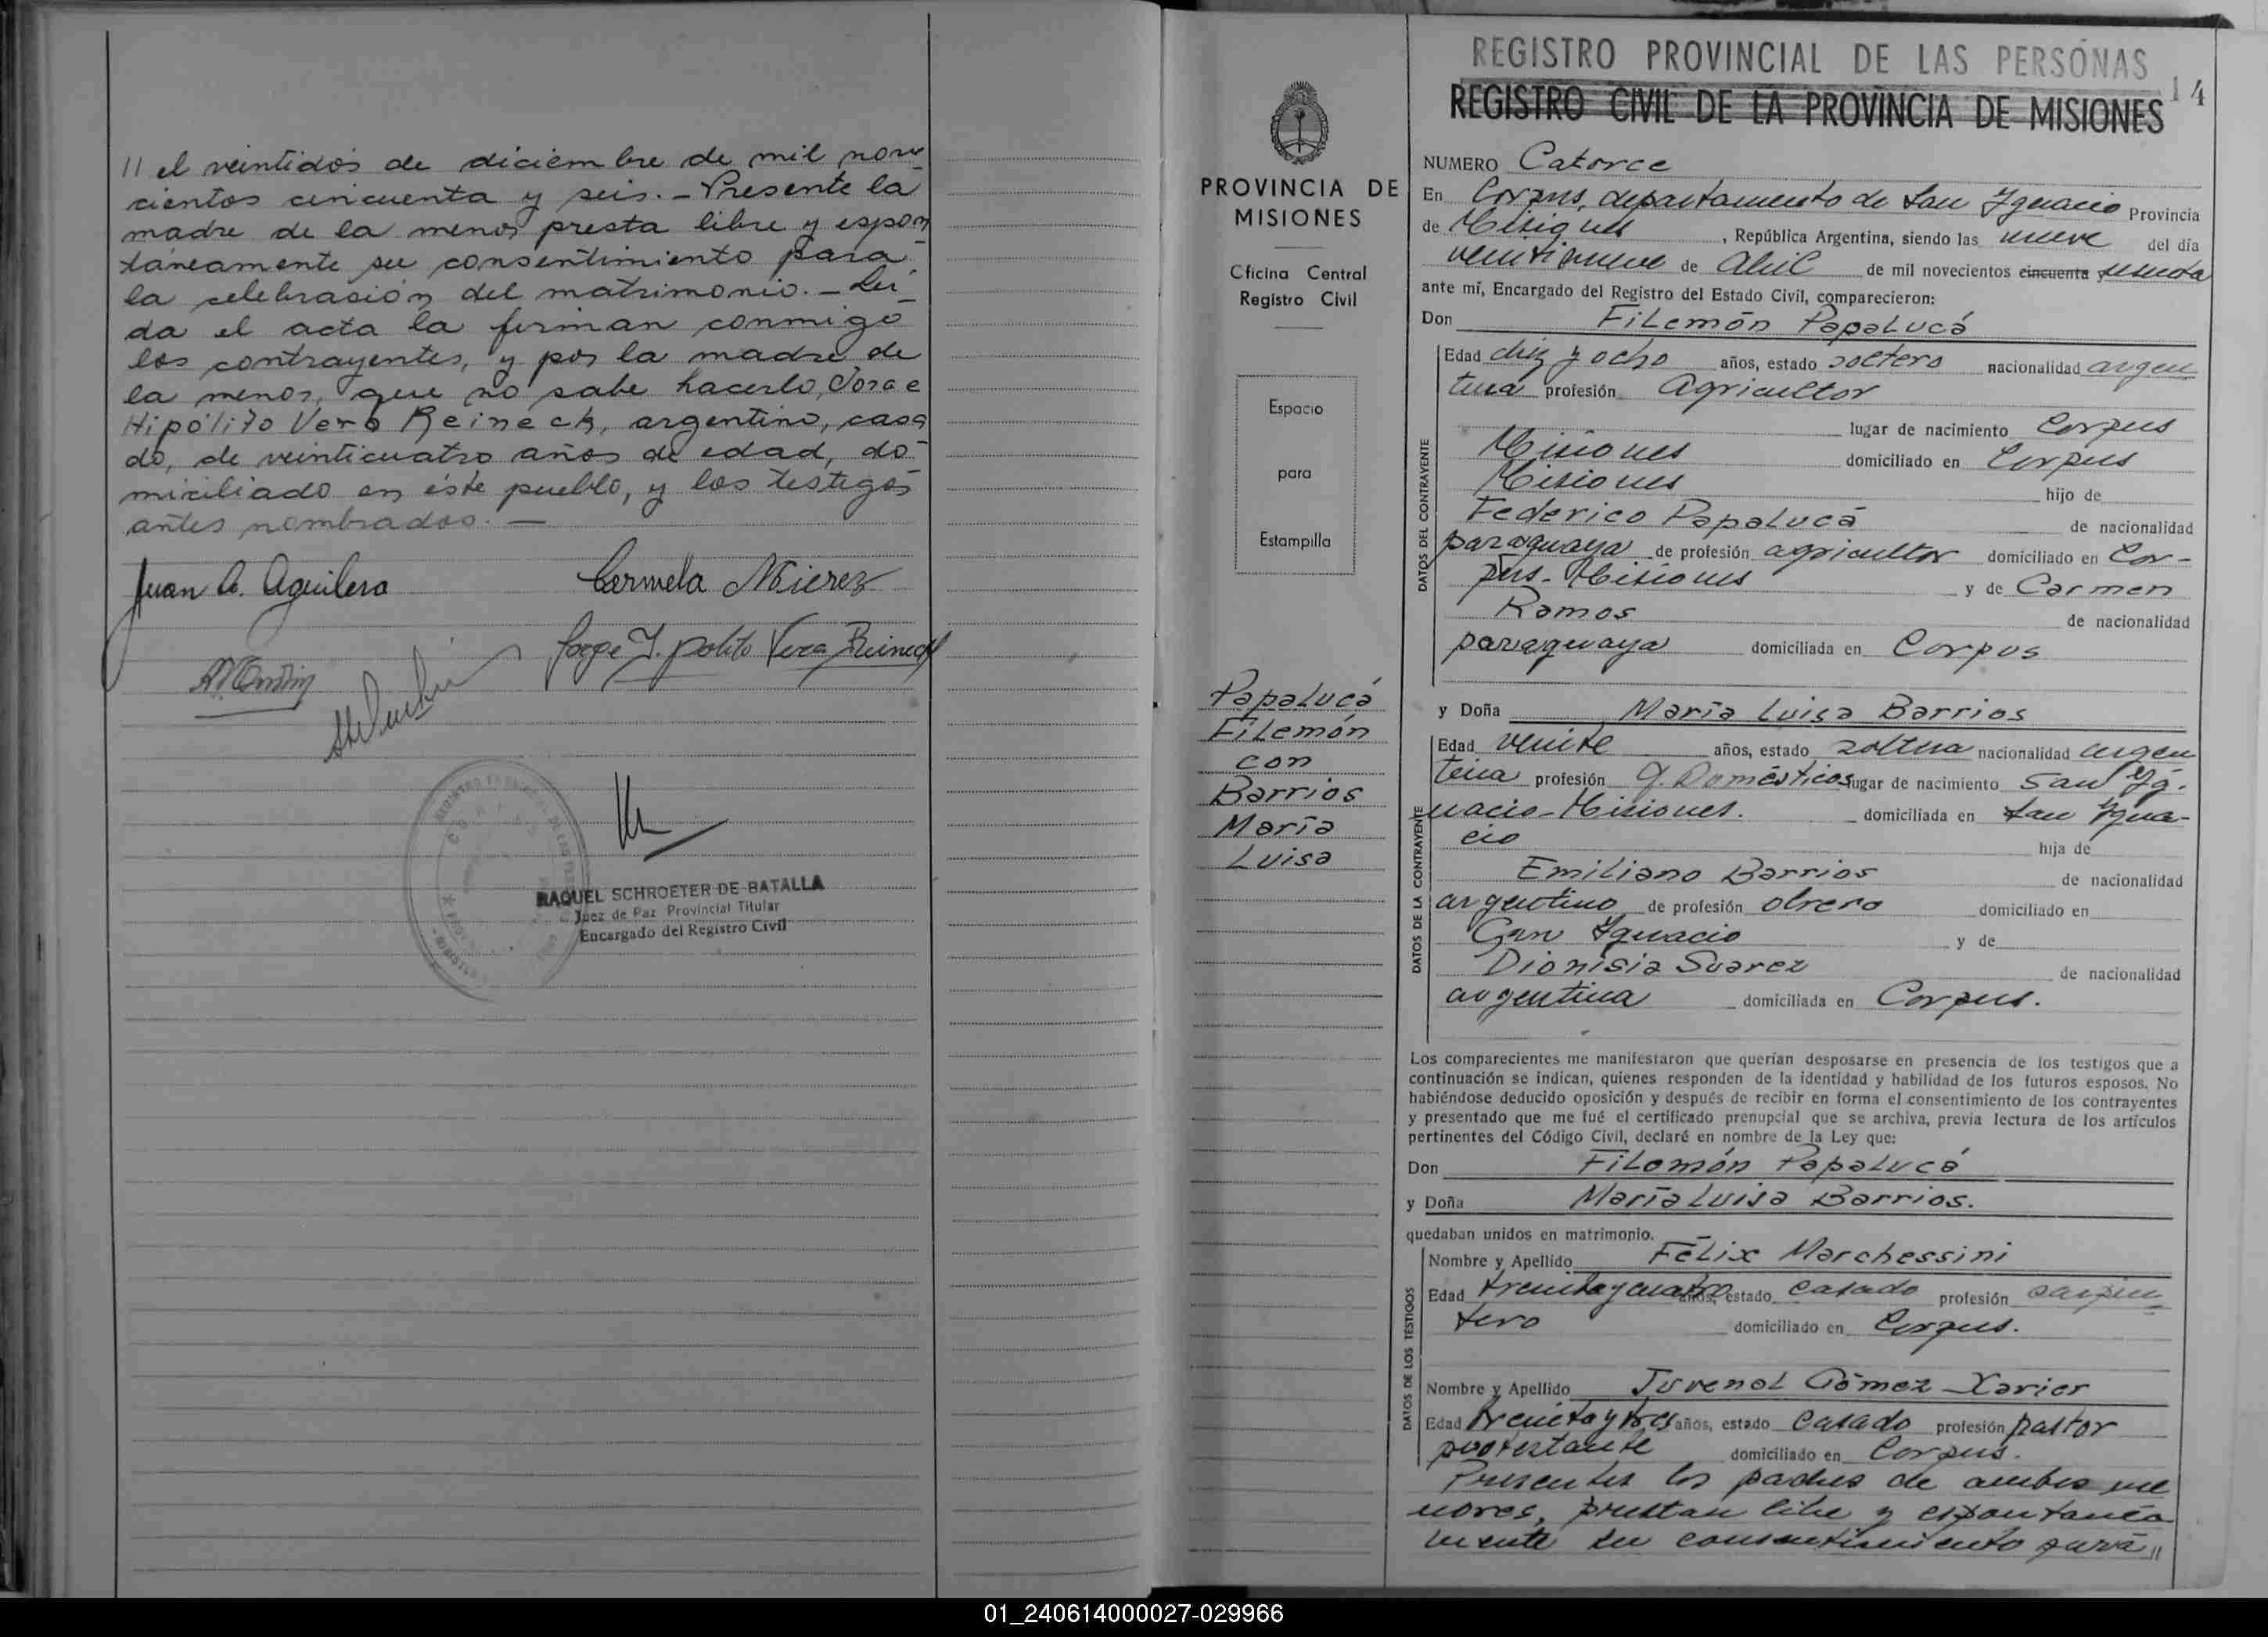 // el veintidós de diciembre de mil nove
cientos cincuenta y seis. - Presente la
madre de la menor presta libre y espon
táneamente su consentimiento para
la celebración del matrimonio. - Lei
da el acta la firman conmigo
los contrayentes, y por la madre de
la menor, que no sabe hacerlo, Jorge
Hipólito Vera Reineck, argentino, casa
do, de veinticuatro años de edad, do
miciliado en éste pueblo, y los testigos
antes nombrados. —
Juan A. Aguilera
Carmela Mierez
Jorge I. polito Vera Reineck
RAQUEL SCHROETER DE BATALLA
Juez de Paz Provincial Titular
Encargado del Registro Civil
PROVINCIA DE
MISIONES
Oficina Central
Registro Civil
Espacio
para
Estampilla
Papalucá
Filemón
con
Barrios
María
Luisa
REGISTRO PROVINCIAL DE LAS PERSONAS
REGISTRO CIVIL DE LA PROVINCIA DE MISIONES
14
NUMERO Catorce
En Corpus, departamento de San Ignacio Provincia
de Misiones, República Argentina, siendo las nueve del día
veintinueve de Abril de mil novecientos cincuenta sesenta
ante mí, Encargado del Registro del Estado Civil, comparecieron:
Don Filemón Papalucá
Edad diez y ocho años, estado soltero nacionalidad argen
tina profesión Agricultor
lugar de nacimiento Corpus
Misiones domiciliado en Corpus
Misiones hijo de
Federico Papalucá de nacionalidad
paraguaya de profesión agricultor domiciliado en Cor-
pus - Misiones y de Carmen
Ramos de nacionalidad
paraguaya domiciliada en Corpus
DATOS DEL CONTRAYENTE
y Doña María Luisa Barrios
Edad veinte años, estado soltera nacionalidad argen
tina profesión Q. Domésticos lugar de nacimiento San Ig-
nacio - Misiones. domiciliada en San Igna-
cio hija de
Emiliano Barrios de nacionalidad
argentino de profesión obrero domiciliado en
San Ignacio y de
Dionisia Suarez de nacionalidad
argentina domiciliada en Corpus.
DATOS DE LA CONTRAYENTE
Los comparecientes me manifestaron que querían desposarse en presencia de los testigos que a
continuación se indican, quienes responden de la identidad y habilidad de los futuros esposos. No
habiéndose deducido oposición y después de recibir en forma el consentimiento de los contrayentes
y presentado que me fué el certificado prenupcial que se archiva, previa lectura de los artículos
pertinentes del Código Civil, declaré en nombre de la Ley que:
Don Filomón Papalucá
y Doña María Luisa Barrios.
quedaban unidos en matrimonio.
Nombre y Apellido Félix Marchessini
Edad treinta y cuatro años, estado casado profesión carpin
tero domiciliado en Corpus.
Nombre y Apellido Juvenal Gómez Xavier
Edad treinta y tres años, estado casado profesión pastor
protestante domiciliado en Corpus.
DATOS DE LOS TESTIGOS
Presentes los padres de ambos me
nores, prestan libre y espontanéa
mente su consentimiento para //
01_240614000027-029966